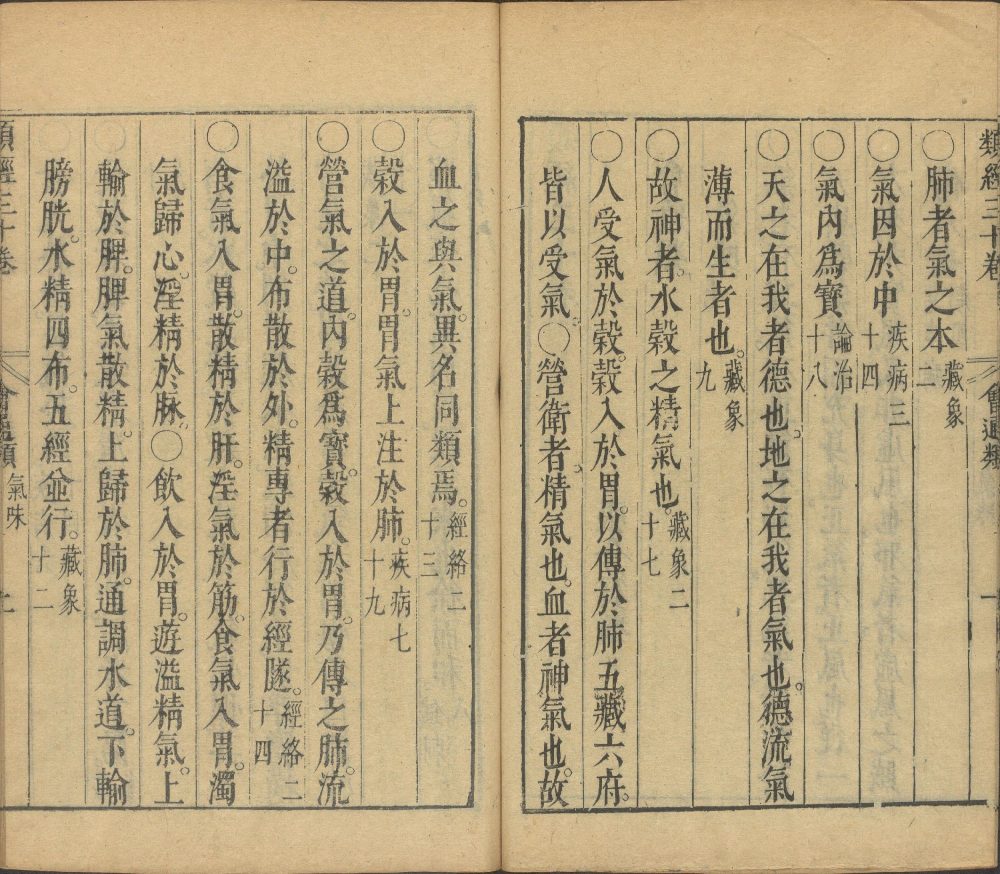 類經三十卷 會通類
〇肺者氣之本藏象二
〇氣因於中疾病三十四
〇氣內爲寶論治十八
〇天之在我者德也地之在我者氣也德流氣
薄而生者也藏象九
〇故神者水穀之精氣也藏象二十七
〇人受氣於穀穀入於胃以傳於肺五藏六府
皆以受氣〇營衛者精氣也血者神氣也故
血之與氣異名同類焉經絡二十三
〇穀入於胃胃氣上注於肺疾病七十九
〇營氣之道內穀爲寶穀入於胃乃傳之肺流
溢於中布散於外精專者行於經隧經絡二十四
〇食氣入胃散精於肝淫氣於筋食氣入胃濁
氣歸心淫精於脉〇飲入於胃遊溢精氣上
輸於脾脾氣散精上歸於肺通調水道下輸
膀胱水精四布五經並行藏象十二
類經三十卷 會通類 氣味